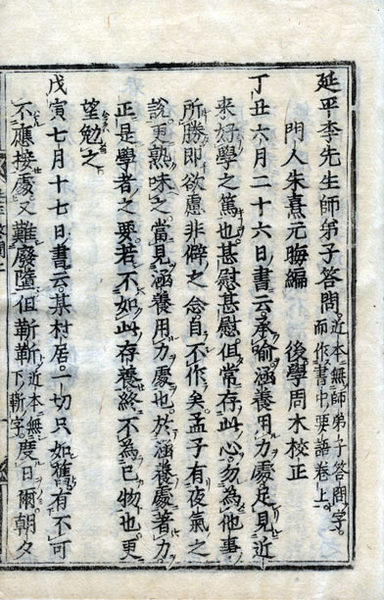 延平李先生師弟子答問近本無師弟子答問字。而作書中要語卷上
門人朱熹元晦編　後學周木校正
丁丑六月二十六日書云承喻涵養用力處足見近
来好學之篤也甚慰甚慰但常存此心勿為他事
所勝即欲慮非僻之念自不作矣孟子有夜氣之
說更熟味之當見涵養用力處也於涵養處著力
正是學者之要若不如此存養終不為已物也更
望勉之
戊寅七月十七日書云某村居一切只如舊有不可
不應接處又難廢墮但靳靳近本無下靳字。度日爾朝夕